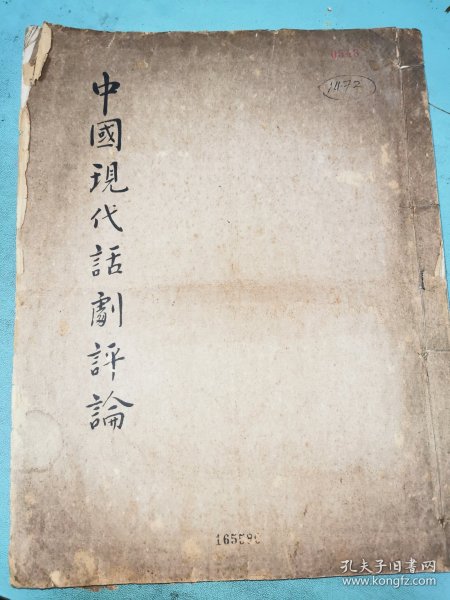 中國現代話劇評論
1472
孔夫子旧书网
www.kongfz.com